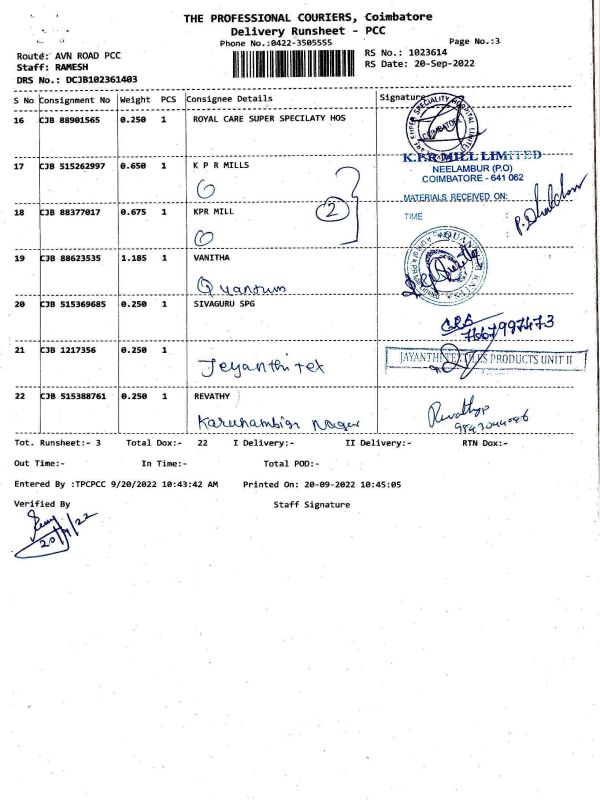 THE PROFESSIONAL COURIERS, Coimbatore
Delivery Runsheet - PCC
Phone No.:0422-3505555
Page No.:3
Route: AVN ROAD PCC
RS No.: 1023614
Staff: RAMESH
RS Date: 20-Sep-2022
DRS No.: DCJB102361403
S No Consignment No Weight PCS Consignee Details Signature
16 CJB 88901565 0.250 1 ROYAL CARE SUPER SPECILATY HOS
COIMBATORE
K.P.R MILL LIMITED
17 CJB 515262997 0.650 1 K P R MILLS
NEELAMBUR (P.O)
COIMBATORE - 641 062
MATERIALS RECEIVED ON:
2
18 CJB 88377017 0.675 1 KPR MILL
TIME
19 CJB 88623535 1.185 1 VANITHA
Quantum
20 CJB 515369685 0.250 1 SIVAGURU SPG
7667997473
21 CJB 1217356 0.250 1
JAYANTHI TEXTILES PRODUCTS UNIT II
Jeyanthi tex
22 CJB 515388761 0.250 1 REVATHY
Revathy
Karunambian Nagar
Tot. Runsheet:- 3 Total Dox:- 22 I Delivery:- II Delivery:- RTN Dox:-
Out Time:- In Time:- Total POD:-
Entered By :TPCPCC 9/20/2022 10:43:42 AM Printed On: 20-09-2022 10:45:05
Verified By Staff Signature
20/9/22